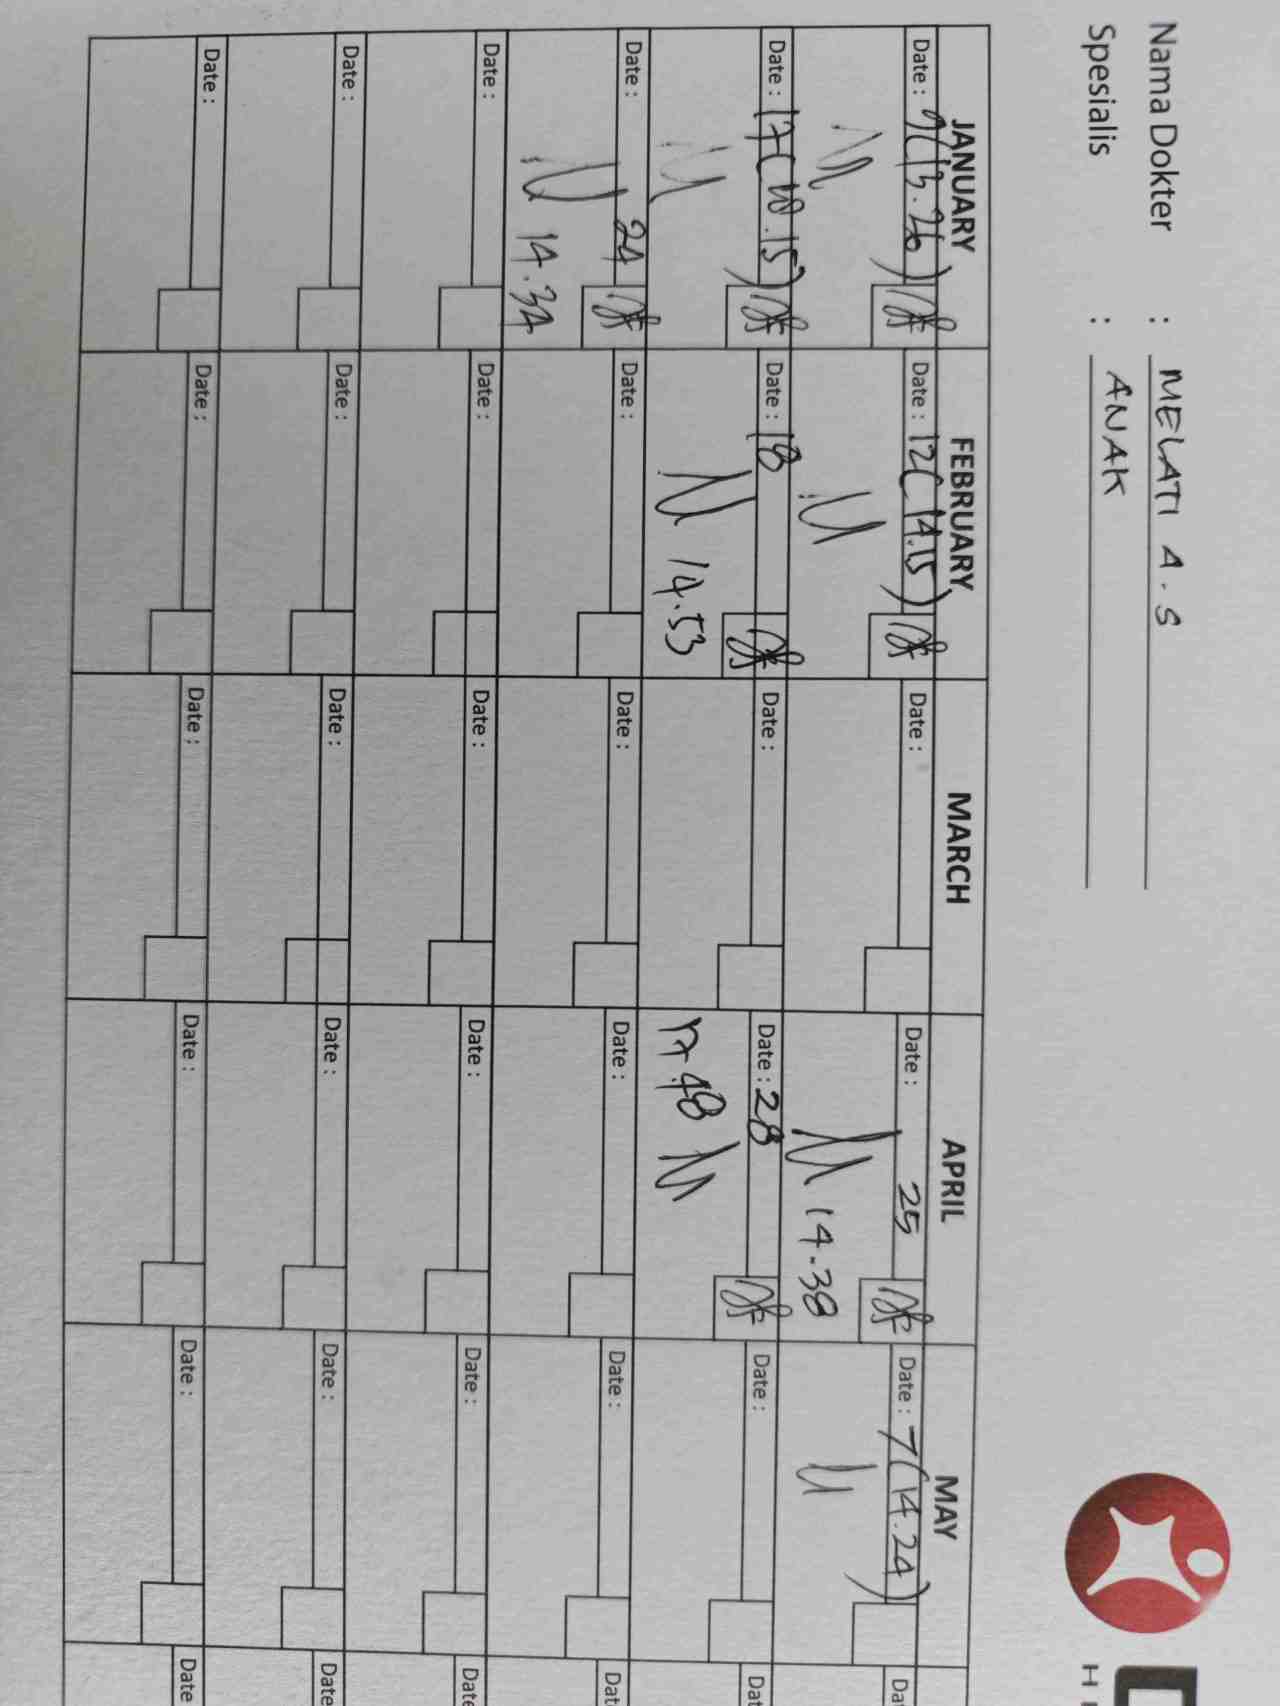 Nama Dokter : MELATI A.S
Spesialis : ANAK
JANUARY FEBRUARY MARCH APRIL MAY
Date : 9(13.26) Date : 12(14.15) Date : Date : 25 Date : 7(14.24)
14.38
Date : 17(10.15) Date : 18 Date : Date : 28 Date :
14.53 17.48
Date : 24 Date : Date : Date : Date :
14.34
Date : Date : Date : Date : Date :
Date : Date : Date : Date : Date :
Date : Date : Date : Date : Date :